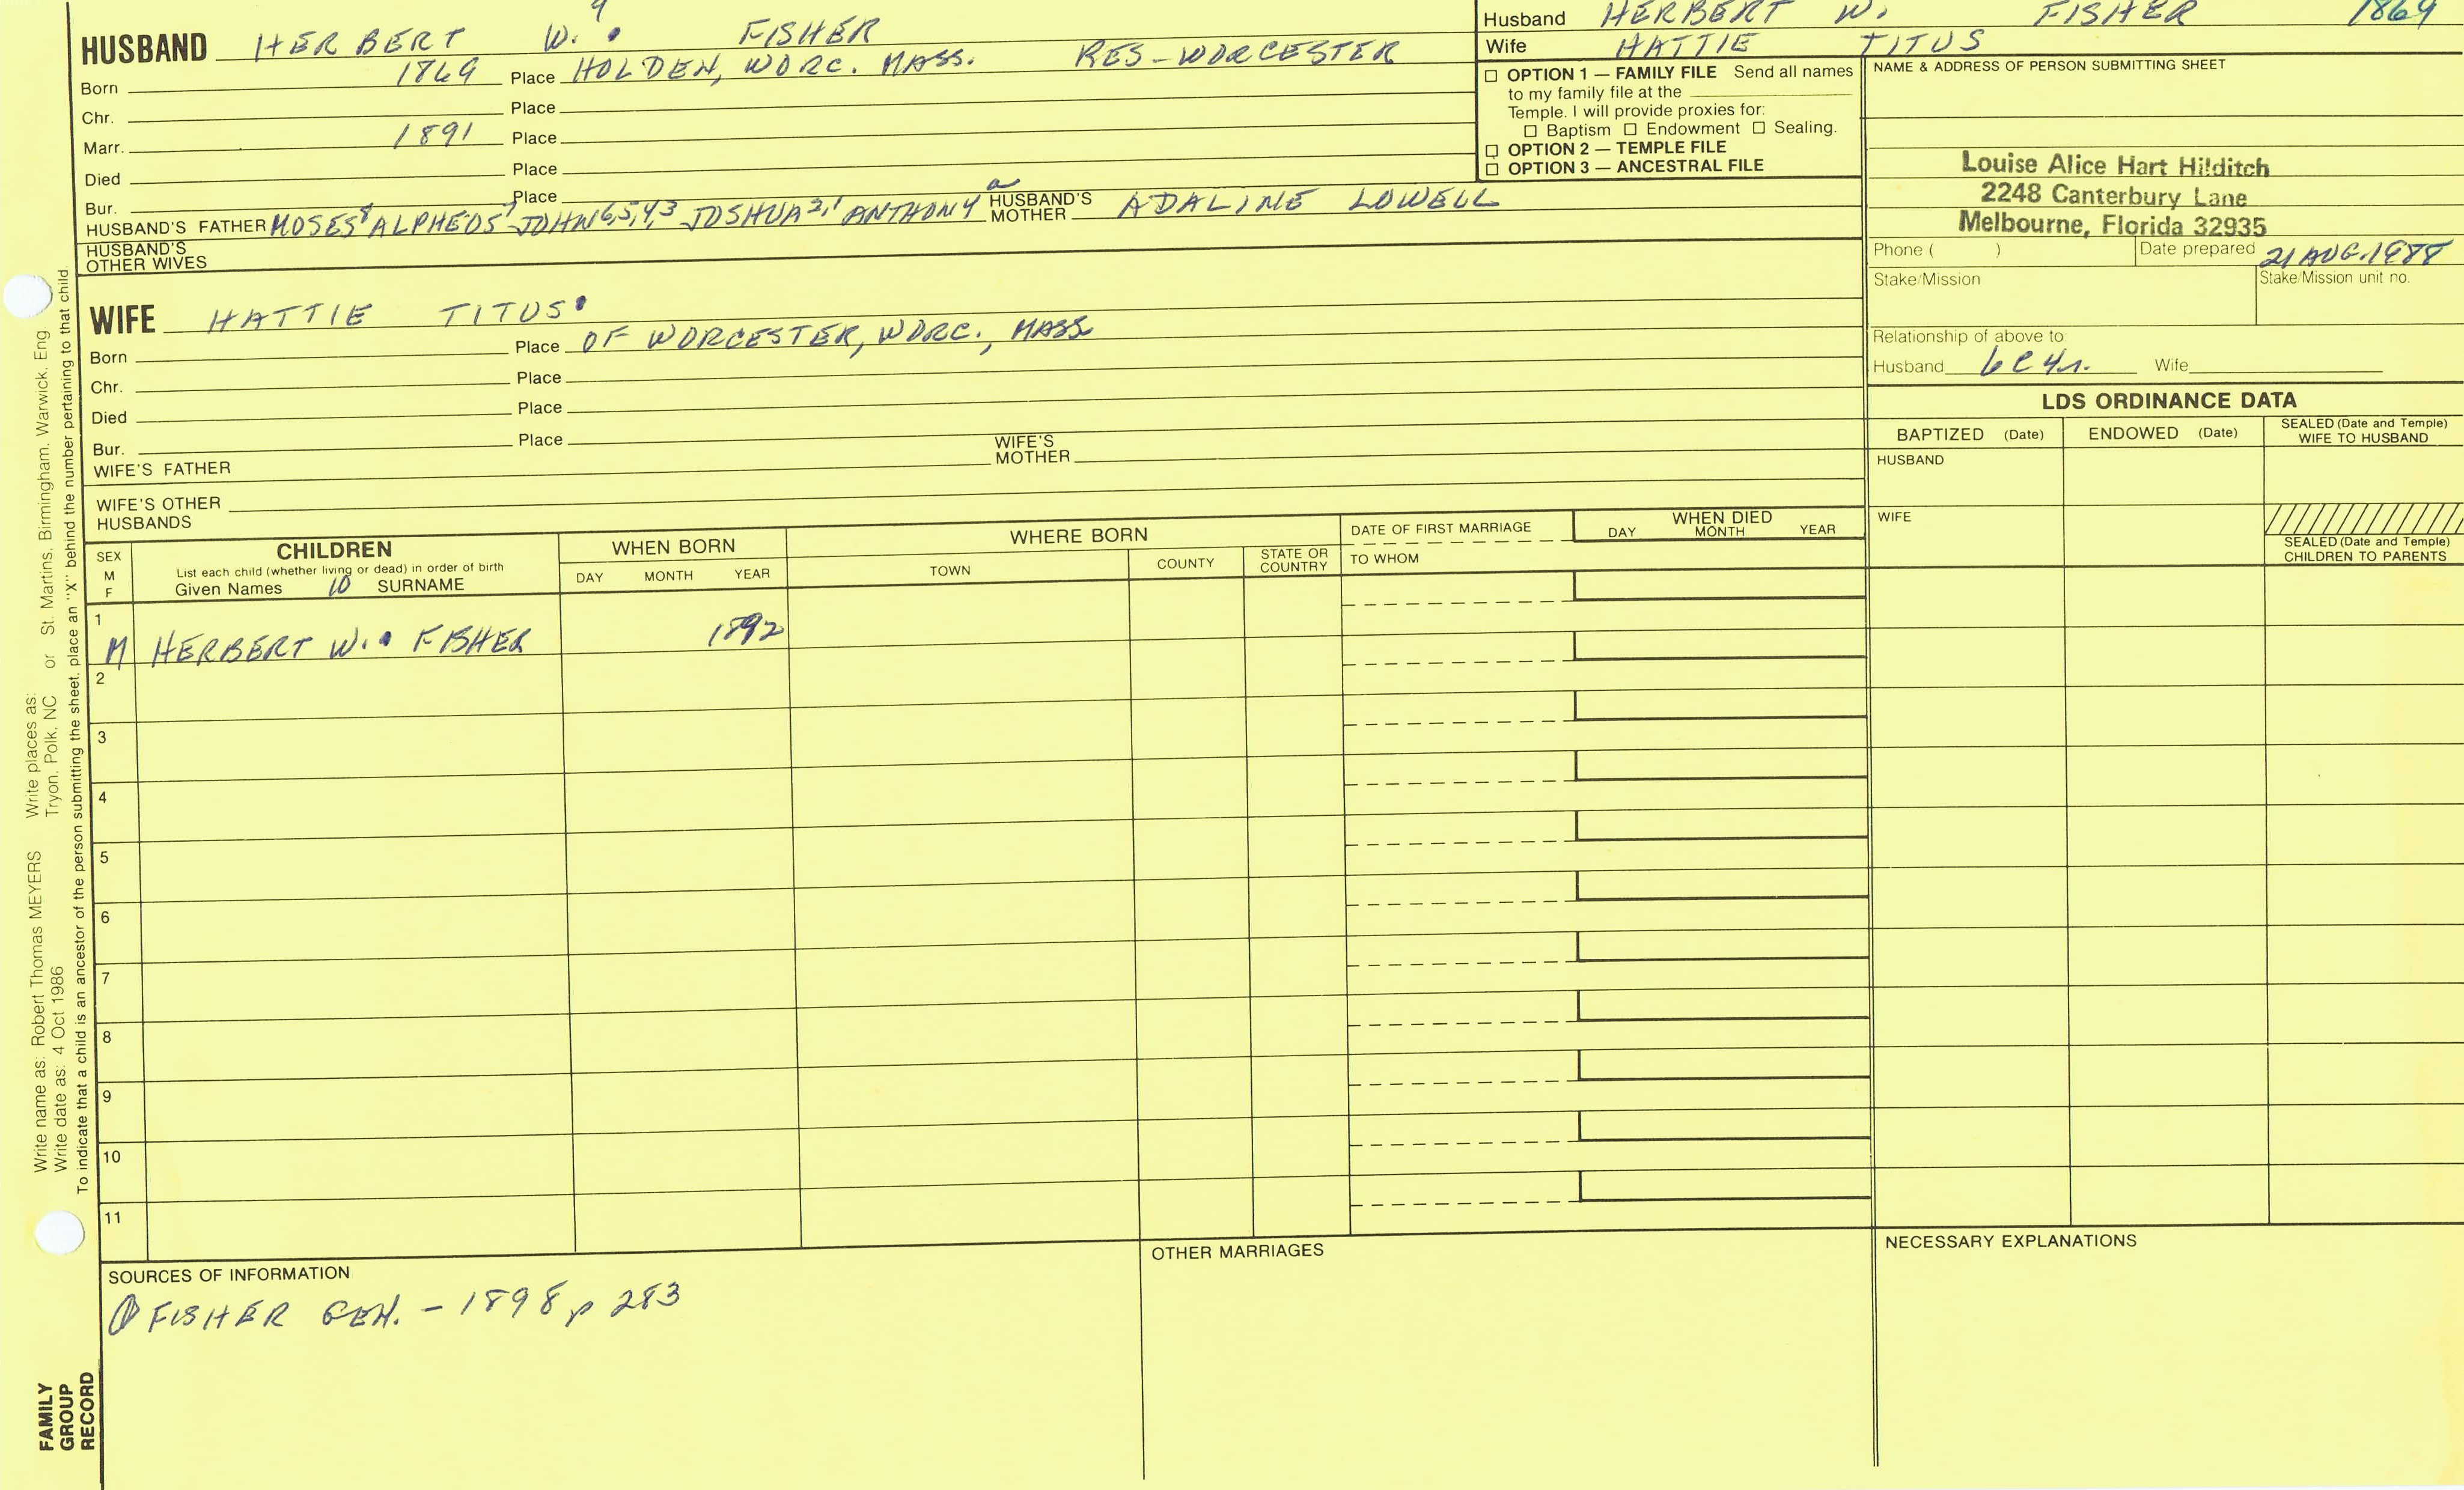 9
HUSBAND HERBERT W. FISHER
Born 1869 Place HOLDEN, WORC. MASS. RES-WORCESTER
Chr. Place
Marr. 1891 Place
Died Place
Bur. Place
HUSBAND'S FATHER MOSES8 ALPHEUS7 JOHN6,5,4,3 JOSHUA2,1 ANTHONYa HUSBAND'S MOTHER ADALINE LOWELL
HUSBAND'S OTHER WIVES
Husband HERBERT W. FISHER 1869
Wife HATTIE TITUS
OPTION 1 — FAMILY FILE Send all names
to my family file at the
Temple. I will provide proxies for:
Baptism Endowment Sealing.
OPTION 2 — TEMPLE FILE
OPTION 3 — ANCESTRAL FILE
NAME & ADDRESS OF PERSON SUBMITTING SHEET
Louise Alice Hart Hilditch
2248 Canterbury Lane
Melbourne, Florida 32935
Phone ( ) Date prepared 21 AUG. 1988
Stake/Mission Stake/Mission unit no.
Relationship of above to:
Husband 6C4r. Wife
WIFE HATTIE TITUS
Born Place OF WORCESTER, WORC., MASS
Chr. Place
Died Place
Bur. Place
WIFE'S FATHER WIFE'S MOTHER
WIFE'S OTHER HUSBANDS
LDS ORDINANCE DATA
BAPTIZED (Date) ENDOWED (Date) SEALED (Date and Temple) WIFE TO HUSBAND
HUSBAND
WIFE
SEALED (Date and Temple) CHILDREN TO PARENTS
SEX M F
CHILDREN
List each child (whether living or dead) in order of birth
Given Names 10 SURNAME
WHEN BORN
DAY MONTH YEAR
WHERE BORN
TOWN COUNTY STATE OR COUNTRY
DATE OF FIRST MARRIAGE
TO WHOM
WHEN DIED
DAY MONTH YEAR
1
M HERBERT W. FISHER 1892
2
3
4
5
6
7
8
9
10
11
SOURCES OF INFORMATION
1 FISHER GEN. - 1898 p 283
OTHER MARRIAGES
NECESSARY EXPLANATIONS
Write name as: Robert Thomas MEYERS Write places as: Tryon, Polk, NC or St. Martins, Birmingham, Warwick, Eng
Write date as: 4 Oct 1986
To indicate that a child is an ancestor of the person submitting the sheet, place an "X" behind the number pertaining to that child.
FAMILY
GROUP
RECORD